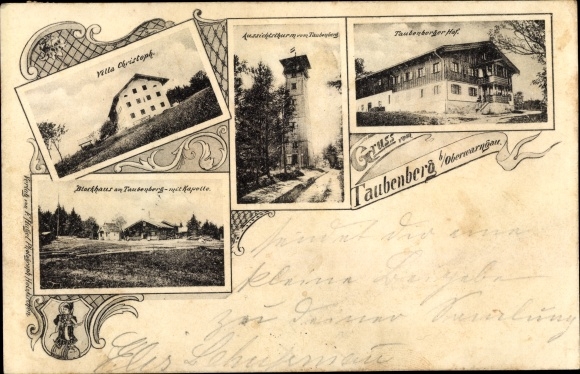 Villa Christoph.
Aussichtsthurm vom Taubenberg.
Taubenberger Hof.
Gruss vom
Taubenberg b/Oberwarngau.
Blockhaus am Taubenberg – mit Kapelle.
Verlag von
sendet dir eine
kleine
zu deiner Samlung